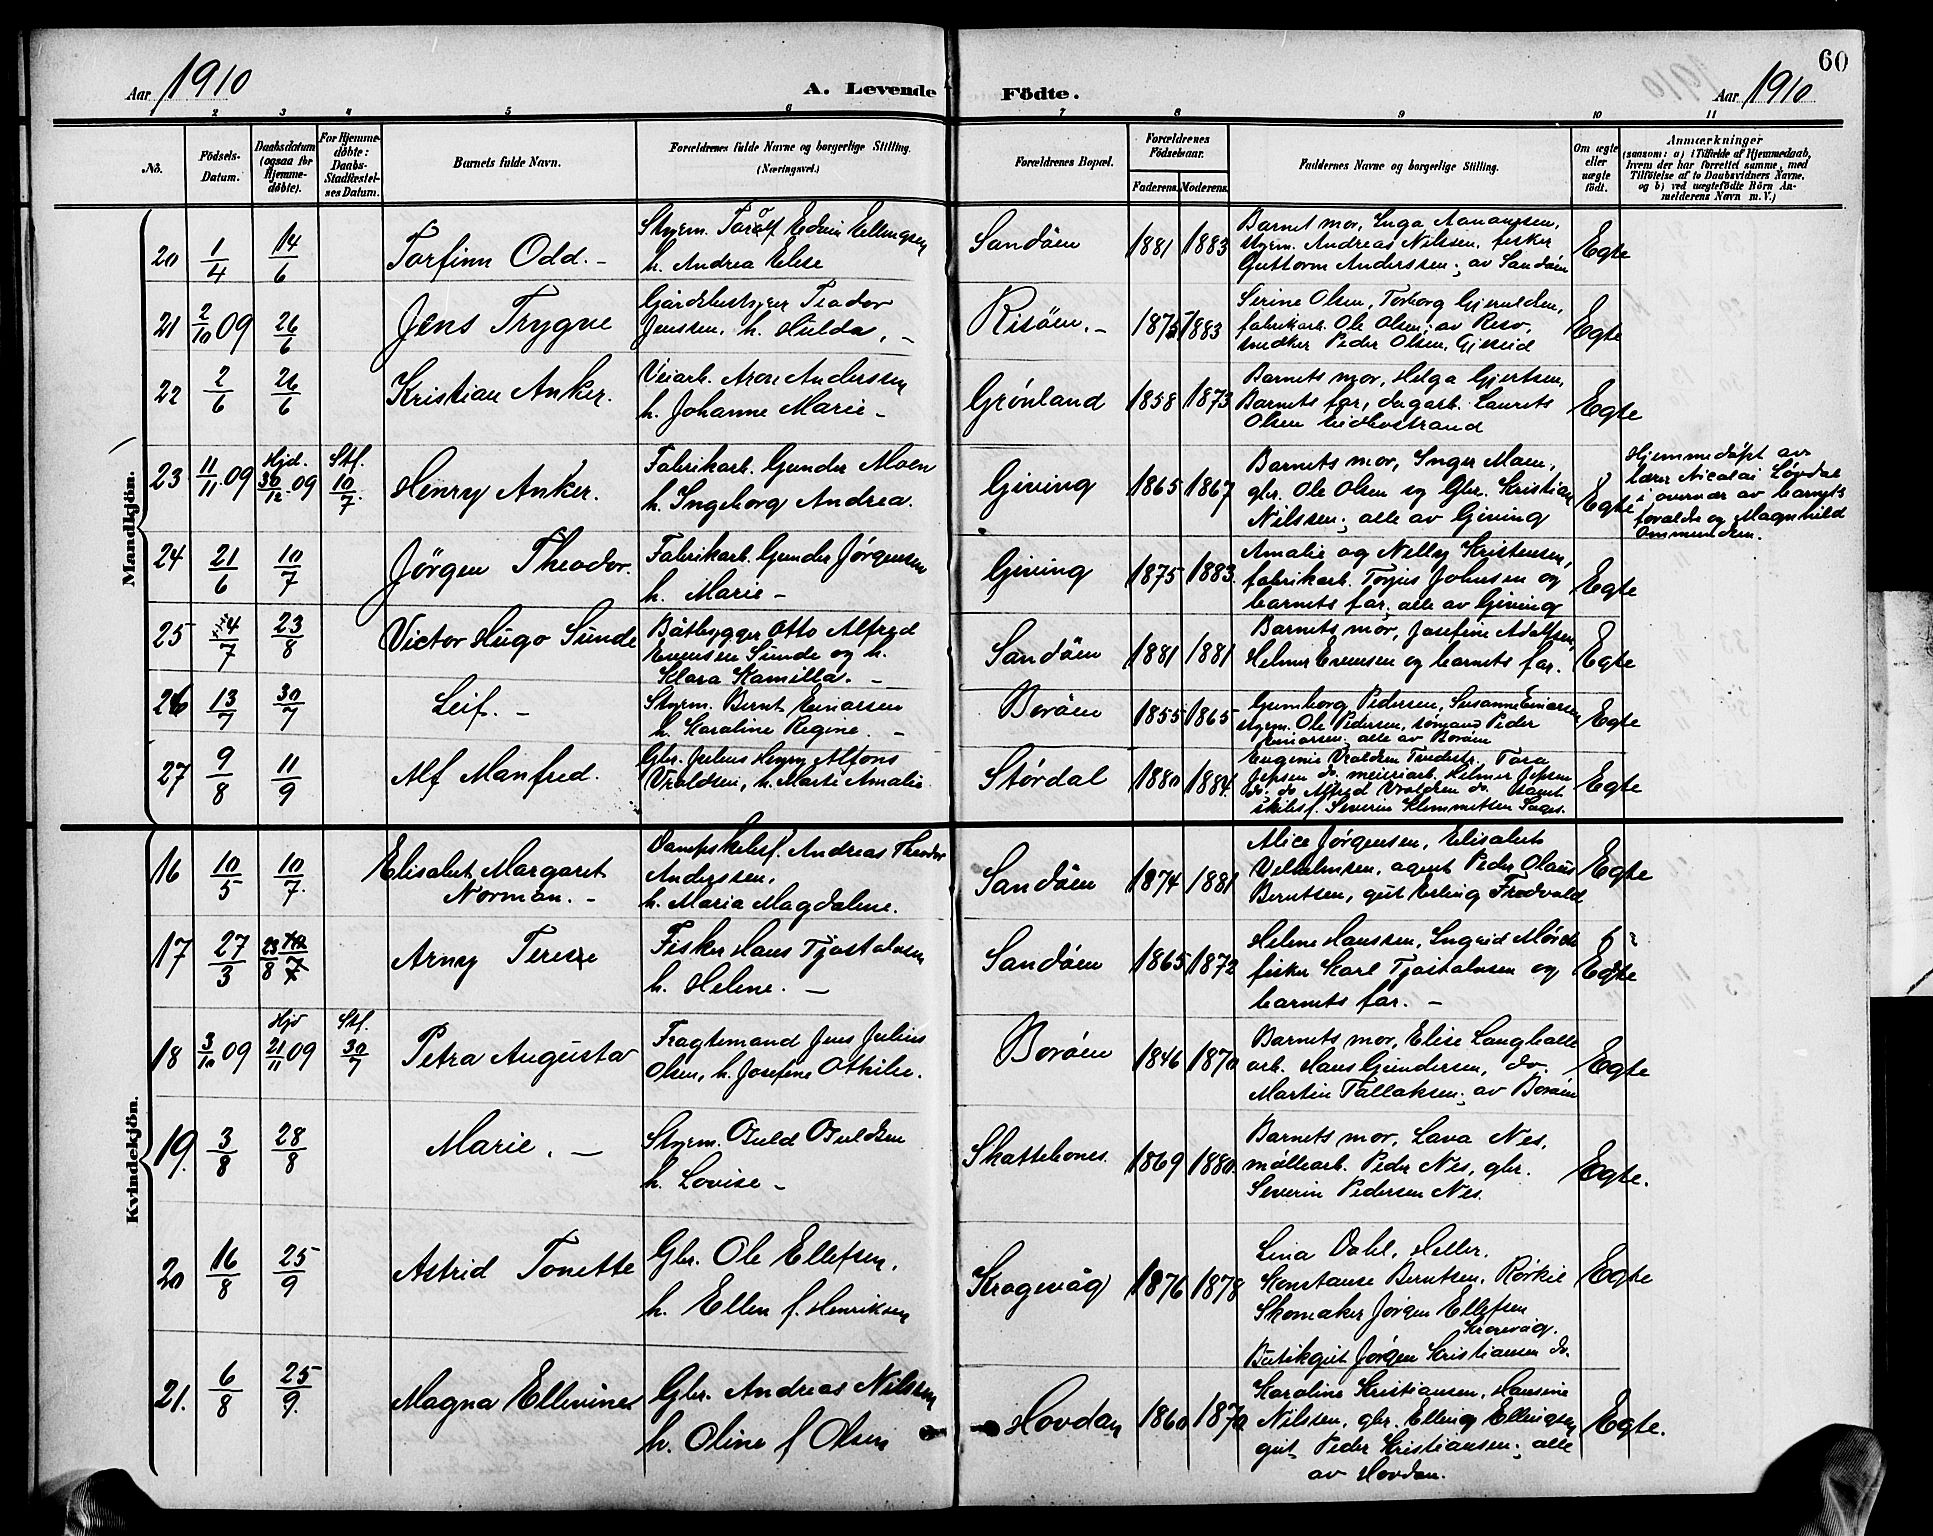 60
Aar 1910
A. Levende Födte.
Aar 1910
1 2 3 4 5 6 7 8 9 10 11
No.
Födsels-Datum.
Daabsdatum (ogsaa for Hjemmedöbte).
For Hjemmedöbte: Daabs-Stadfæstelses Datum.
Barnets fulde Navn.
Forældrenes fulde Navne og borgerlige Stilling.
(Næringsvei.)
Forældrenes Bopæl.
Forældrenes Födselsaar.
Faderens. Moderens.
Faddernes Navne og borgerlige Stilling.
Om ægte eller uægte födt.
Anmærkninger
(saasom: a) i Tilfælde af Hjemmedaab, hvem der har forrettet samme, med Tilföielse af to Daabsvidners Navne, og b) ved uægtefödte Börn Anmelderens Navn m. V.)
Mandkjön.
20 1/4 14/6 Torfinn Odd. - Styrm. Toralf Edvin Ellingsen h. Andrea Elise Sandöen 1881 1883 Barnets mor, Inga Aanonsen, styrm. Andreas Nilssen, fisker Guttorm Anderssen; av Sandöen Egte
21 2/10 09 26/6 Jens Trygve Gårdbestyrer Teodor Jenssen, h. Hulda, - Risöen. - 1875 1883 Serine Olsen, Torborg Gjeruldsen, fabrikarb. Ole Olsen; av Resv. snedker Peder Olsen, Egte
22 2/6 26/6 Kristian Anker. Veiarb. Aron Anderssen h. Johanne Marie - Grönland 1858 1873 Barnets mor, Helga Gjertsen, Barnets far, dagarb. Laurits Olsen Egte
23 11/11 09 Hjd. 30/12 09 Stf. 10/7 Henry Anker. Fabrikarb. Gunder Moen h. Ingeborg Andrea. Gjeving 1865 1867 Barnets mor, Inger Moen, gbr. Ole Olsen og Gbr. Kristian Nilssen; alle av Gjeving Egte Hjemmedöpt av lærer Nicolai Lövdal i overvær av barnets forældre og Magnhild Ommundsen.
24 21/6 10/7 Jörgen Theodor. Fabrikarb. Gunder Jörgensen h. Marie - Gjeving 1875 1883. Amalie og Nelly Kristensen, fabrikarb. Torjus Johnsen og barnets far; alle av Gjeving Egte
25 4/7 23/8 Victor Hugo Sunde Båtbygger Otto Alfred Evensen Sunde og h. Klara Kamilla. - Sandöen 1881 1881 Barnets mor, Josefine Adolfsen, Helmer Evensen og barnets far. Egte
26 13/7 30/7 Leif. - Styrm. Bernt Einarsen h. Karoline Regine. - Boröen 1855 1865 Gunborg Pedersen, Susanne Einarsen styrm. Ole Pedersen, sömand Peder Einarsen; alle av Boröen Egte
27 9/8 11/9 Alf Manfred. Gbr. Julius Henry Alfons Vraldsen, h. Marti Amalie Stördal 1880 1884. Eugenie Vraldsen Tvedestr., Tora Jepsen do. meieriarb. Helmer Jepsen do. do Alfred Vraldsen do. samt skibsf. Severin Klemmetsen Egte
Kvindekjön.
16 10/5 10/7. Elisabet Margaret Norman. - Dampskibsf. Andreas Theodor Anderssen, h. Maria Magdalene. Sandöen 1874 1881 Alice Jörgensen, Elisabet Vilhelmsen, agent Peder Olaus Berntsen, gut Erling Fredvald Egte
17 27/3 23/8 Arny Terese Fisker Hans Tjöstolvsen h. Helene. - Sandöen 1865 1872 Helene Hanssen, Ingrid Mörch fisker Karl Tjöstolvsen og barnets far. - Egte
18 3/10 09 Hjd 21/11 09 Stf. 30/7 Petra Augusta Fragtemand Jens Julius Olsen, h. Josefine Othilie. Boröen 1846 1870 Barnets mor, Elise Langballe arb. Hans Gundersen, do. Martin Tallaksen; av Boröen Egte
19. 3/8 28/8 Marie. - Styrm. Osuld Osuldsen h. Lovise - Skottebones. 1869 1880. Barnets mor, Lava Nes, möllearb. Peder Nes, gbr. Severin Pedersen Nes. Egte.
20 16/8 25/9 Astrid Tonette Gbr. Ole Ellefsen, h. Ellen f. Henriksen Kragevåg 1876 1878 Lina Dahl, Heller. Konstanse Berntsen, Rörkil Skomaker Jörgen Ellefsen Kragevåg. Butikgut Jörgen Kristiansen do. Egte
21. 6/8 25/9. Magna Ellevine Gbr. Andreas Nilssen h. Oline f Olsen Hovdan 1860 1870. Karoline Kristiansen, Hansine Nilssen, gbr. Elling Ellingsen gut Peder Kristiansen; alle av Hovdan. Egte.